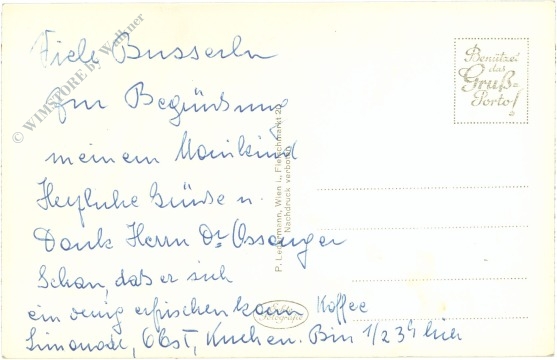 Viele Busserln
zur Begrüssung
meinem Mannikind
Herzliche Grüsse u.
Dank Herrn Dr Ossenger
Schau, dass er sich
ein wenig erfrischen kann Kaffee
Limonade, Obst, Kuchen. Bin 1/2 3h hier
Benütze!
das
Gruß=
Porto!
P. Ledermann, Wien I., Fleischmarkt 20
Nachdruck verboten
© WIMSTORE by Wallner